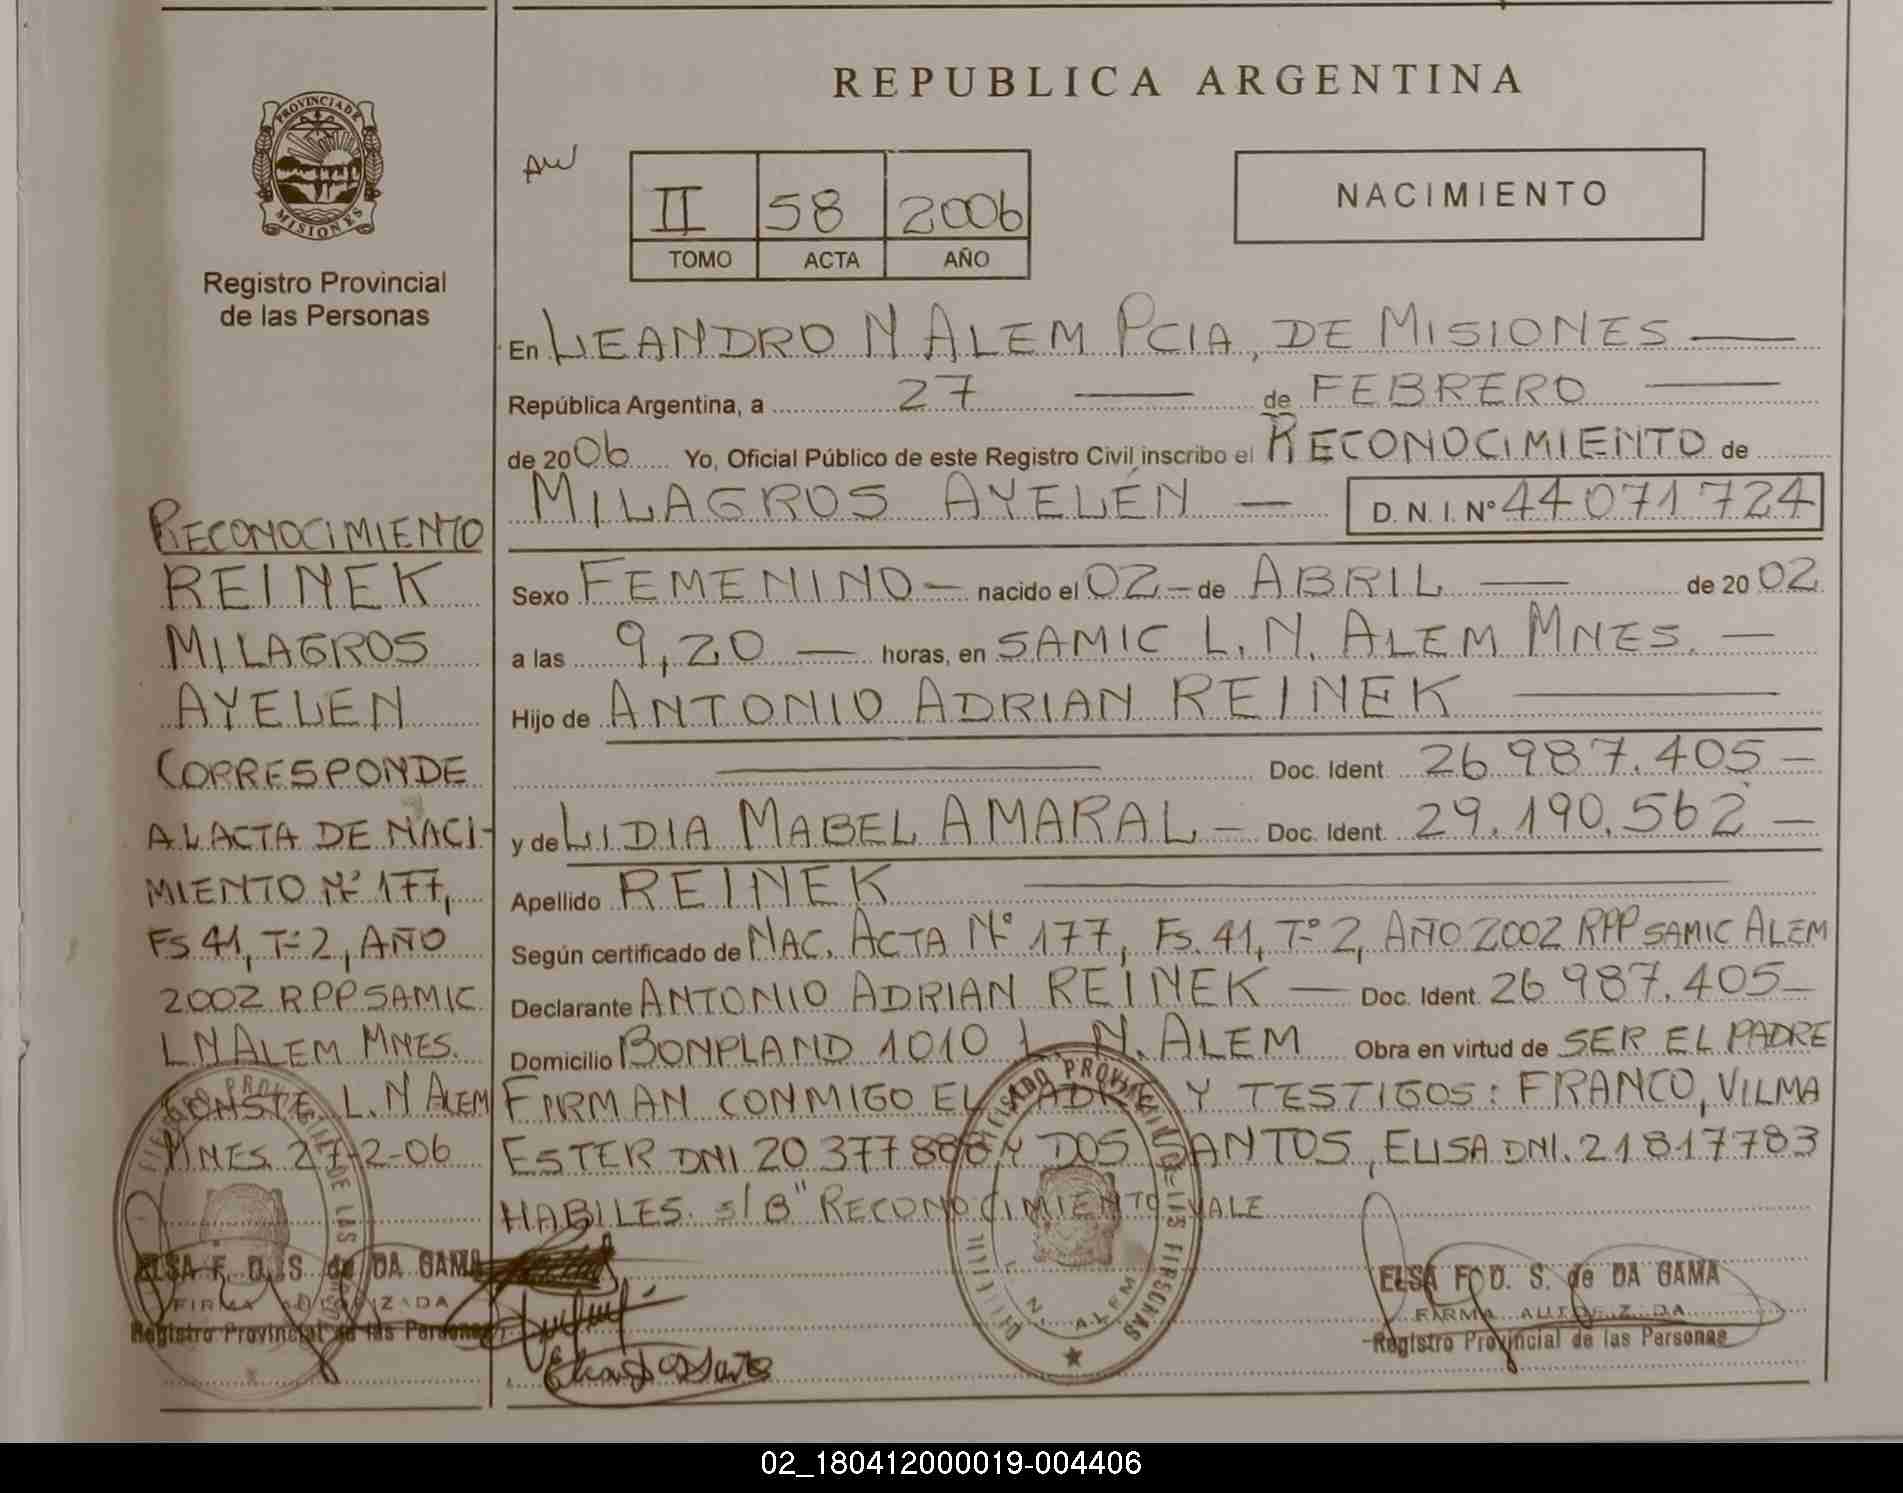 REPUBLICA ARGENTINA
PROVINCIA DE MISIONES
Registro Provincial
de las Personas
AW
II 58 2006
TOMO ACTA AÑO
NACIMIENTO
En LEANDRO N ALEM PCIA, DE MISIONES
República Argentina, a 27 de FEBRERO
de 2006 Yo, Oficial Público de este Registro Civil inscribo el RECONOCIMIENTO de
MILAGROS AYELÉN — D. N. I. N° 44071724
Sexo FEMENINO — nacido el 02 — de ABRIL — de 2002
a las 9,20 — horas, en SAMIC L. N. ALEM MNES. —
Hijo de ANTONIO ADRIAN REINEK
Doc. Ident. 26.987.405 —
y de LIDIA MABEL AMARAL — Doc. Ident. 29.190.562 —
Apellido REINEK
Según certificado de NAC. ACTA N° 177, Fs. 41, T° 2, AÑO 2002 RPP SAMIC ALEM
Declarante ANTONIO ADRIAN REINEK — Doc. Ident. 26 987.405 —
Domicilio BONPLAND 1010 L. N. ALEM Obra en virtud de SER EL PADRE
FIRMAN CONMIGO EL PADRE Y TESTIGOS: FRANCO, VILMA
ESTER DNI 20 377 888 Y DOS SANTOS, ELISA DNI. 21817783
HABILES. s/B" RECONOCIMIENTO VALE
RECONOCIMIENTO
REINEK
MILAGROS
AYELEN
CORRESPONDE
AL ACTA DE NACI-
MIENTO N° 177,
Fs 41, T° 2, AÑO
2002 RPP SAMIC
L N ALEM MNES.
CONSTE L. N ALEM
MNES 27-2-06
ELSA F. D. S. de DA GAMA
FIRMA AUTORIZADA
Registro Provincial de las Personas
L. N. ALEM
ELSA F. D. S. de DA GAMA
FIRMA AUTORIZADA
Registro Provincial de las Personas
02_180412000019-004406